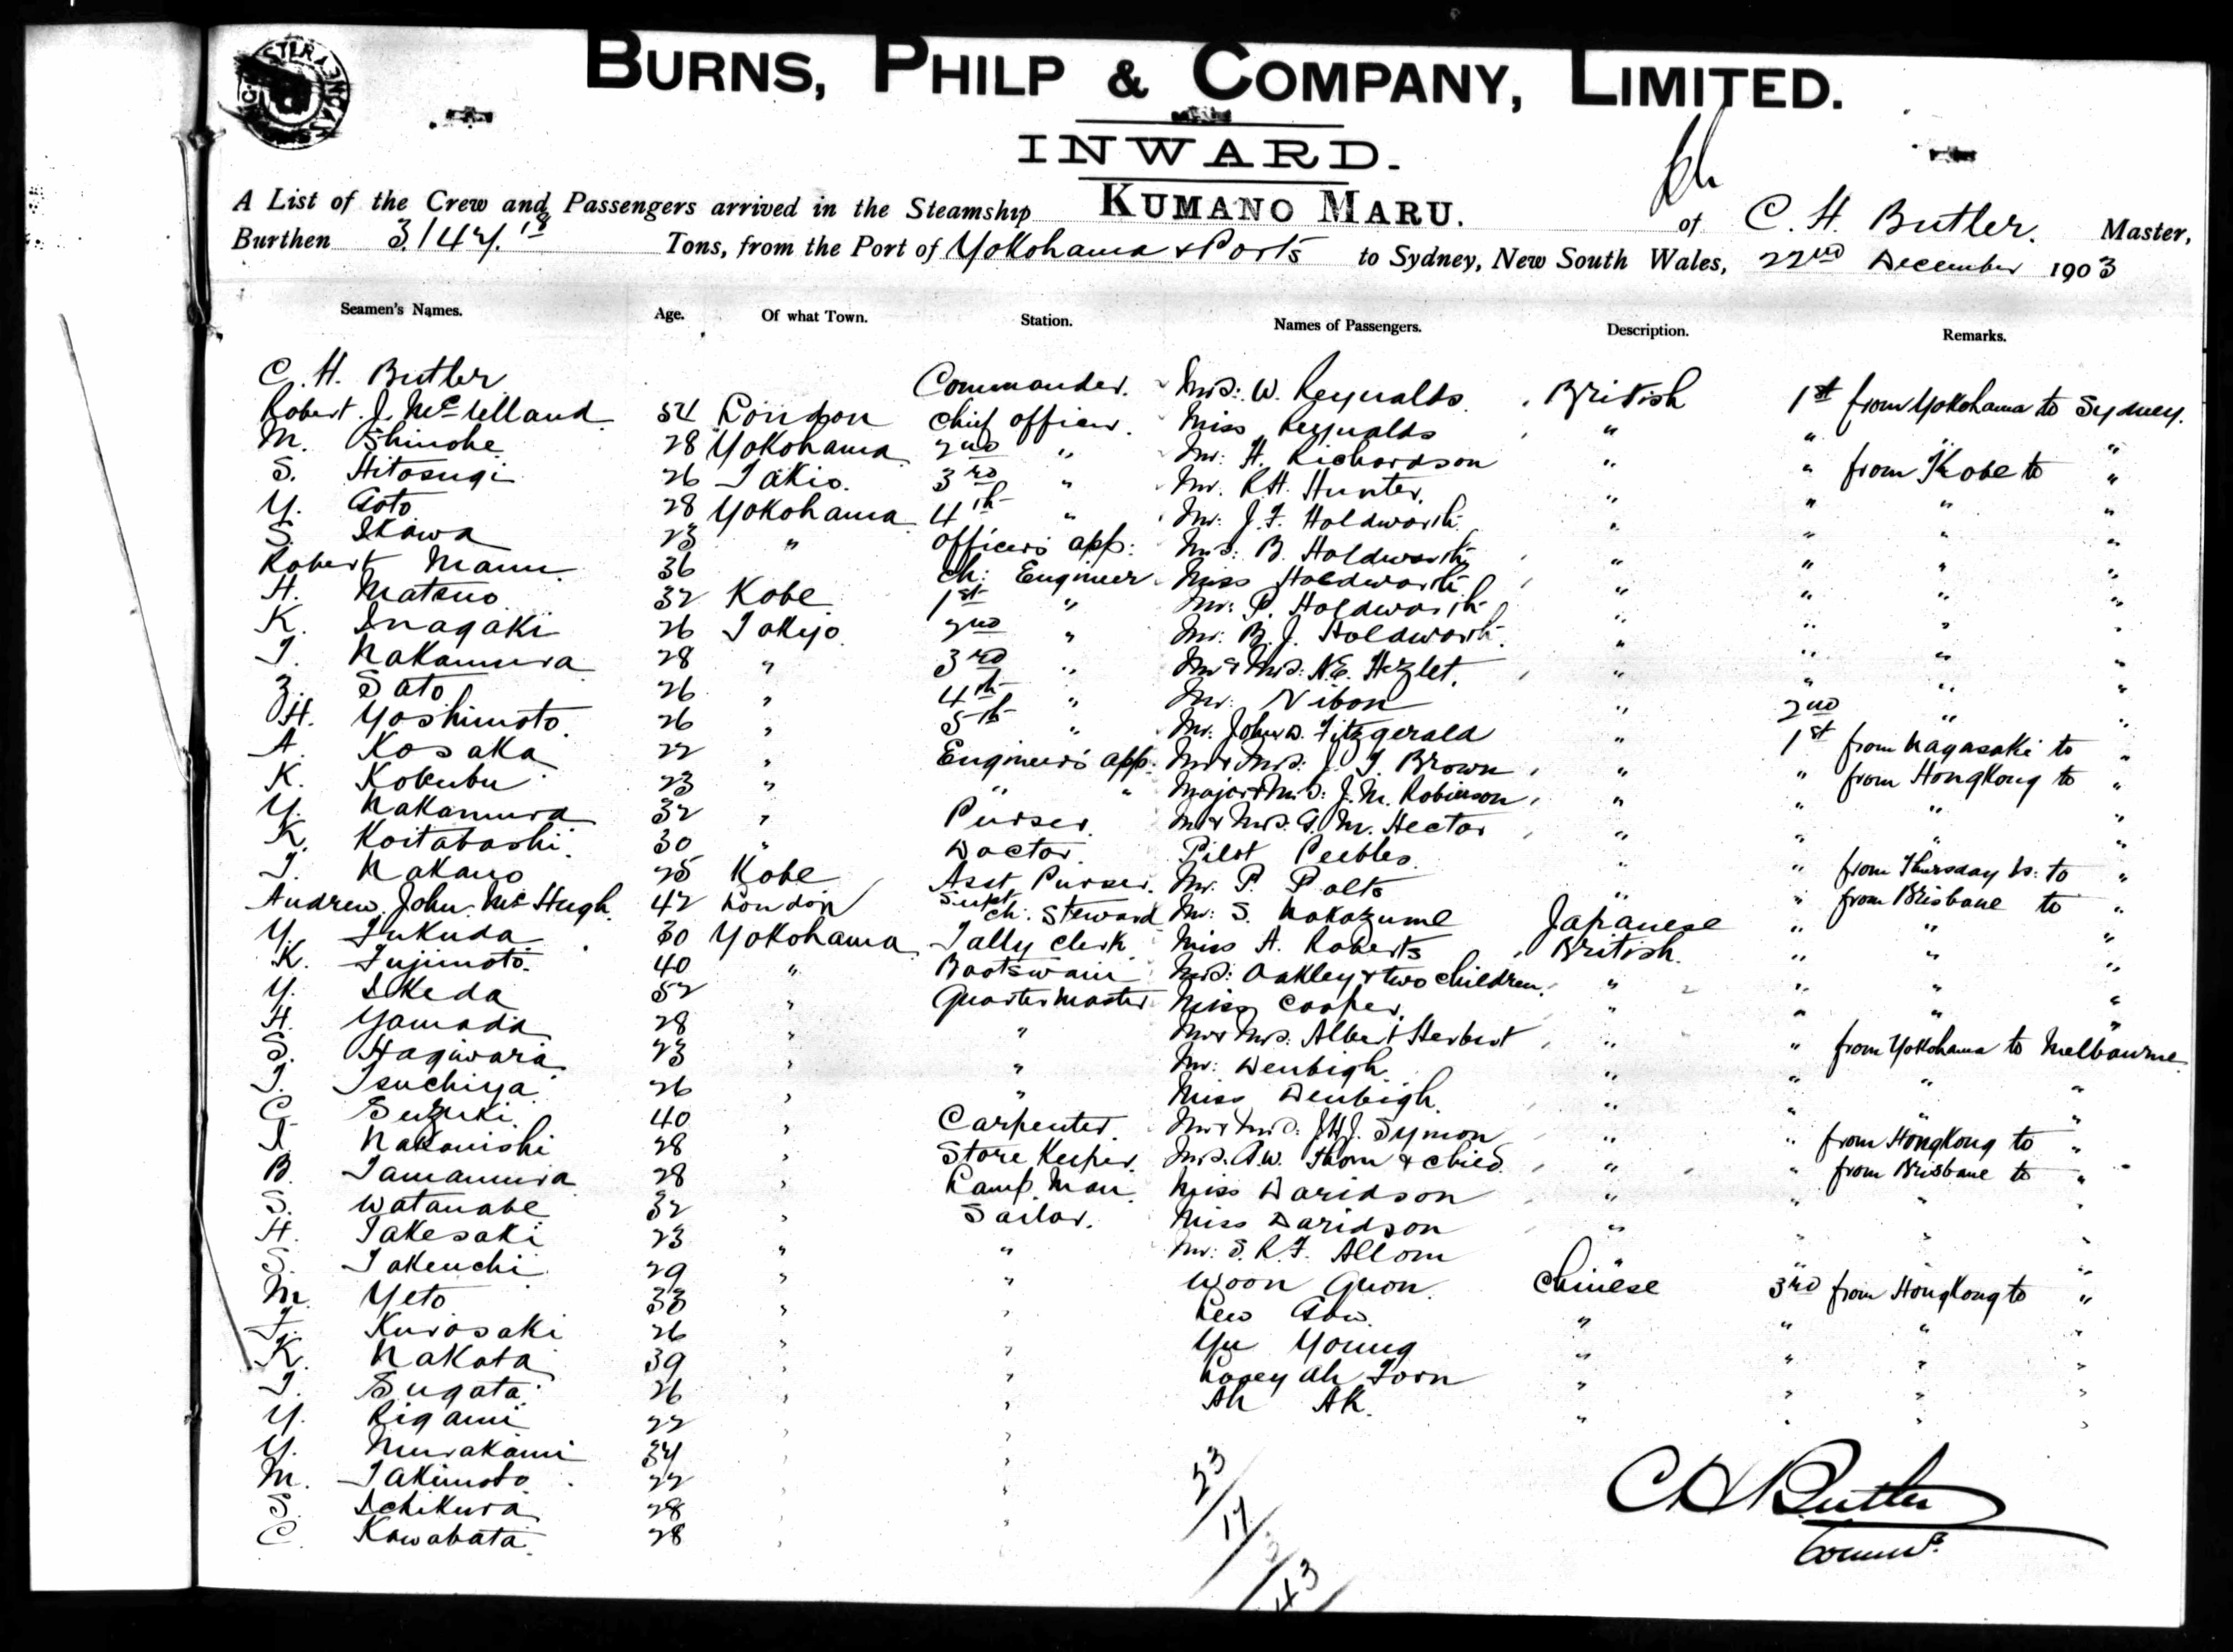 BURNS, PHILP & COMPANY, LIMITED.
INWARD.
A List of the Crew and Passengers arrived in the Steamship KUMANO MARU. of C. H. Butler. Master,
Burthen 3147.18 Tons, from the Port of Yokohama & Ports to Sydney, New South Wales, 22nd December 1903
Seamen's Names. Age. Of what Town. Station. Names of Passengers. Description. Remarks.
C. H. Butler Commander. Mrs: W. Reynalds. British 1st from Yokohama to Sydney.
Robert. J. McLelland 54 London Chief officer. Miss Reynalds " " " "
M. Shinohe 28 Yokohama 2nd " Mr: H. Richardson " " from Kobe to "
S. Hitosugi 26 Tokio. 3rd " Mr. R.H. Hunter. " " " "
Y. Goto 28 Yokohama 4th " Mr: J. F. Holdworth " " " "
S. Ikawa 23 " Officers app: Mrs: B. Holdworth " " " "
Robert Mann. 36 Ch: Engineer Miss Holdworth " " " "
H. Matsuo 32 Kobe 1st " Mr: P. Holdworth " " " "
K. Inagaki 26 Tokyo 2nd " Mr. B. J. Holdworth. " " " "
T. Nakamura 28 " 3rd " Mr & Mrs: N.E. Hezlet. " " " "
Z. Sato 26 " 4th " Mr: Nibon " 2nd " "
H. Yoshimoto. 26 " 5th " Mr. John D. Fitzgerald " 1st from Nagasaki to "
A. Kosaka 22 " Engineers app. Mr & Mrs: J. T. Brown " " from HongKong to "
K. Kokubu 23 " " " Major & Mrs: J. M. Robinson " " " "
Y. Nakamura 32 " Purser. Mr & Mrs. G. M. Hector " " " "
K. Koitabashi. 30 " Doctor. Pilot Peebles. " " from Thursday Is: to "
T. Nakano 25 Kobe Asst. Purser. Mr. P. Polts " " from Brisbane to "
Andrew. John. McHugh. 42 London Supt Ch: Steward Mr: S. Nakazume Japanese " " "
Y. Fukuda. 30 Yokohama Tally Clerk Miss A. Roberts British. " " "
K. Fujimoto. 40 " Boatswain Mrs: Oakley & two children. " " " "
Y. Ikeda 52 " Quartermaster Miss Cooper. " " " "
H. Yamada 28 " " Mr & Mrs: Albert Herbert " " from Yokohama to Melbourne
S. Hagiwara 23 " " Mr: Denbigh. " " " "
T. Tsuchiya 26 " " Miss Denbigh. " " " "
G. Suzuki. 40 " Carpenter. Mr & Mrs: J.H.J. Symon " " from HongKong to "
I. Nakanishi 28 " Store Keeper. Mrs. A.W. Thom & child. " " from Brisbane to "
B. Tamamura 28 " Lamp. Man. Miss Davidson " " " "
S. Watanabe 32 " Sailor. Miss Davidson " " " "
H. Takesaki 23 " " Mr: S. R. F. Allom " " " "
S. Takeuchi 29 " " Woon Quon. Chinese 3rd from HongKong to "
M. Yeto 33 " " Lew Gow. " " " "
F. Kurosaki 26 " " Yu Young " " " "
K. Nakata 39 " " Ah Torn " " " "
T. Sugata 26 " " Ah Ak. " " " "
Y. Rigami 22 " "
Y. Murakami 34 " "
M. Takimoto. 22 " "
S. Ichikura 28 " "
C. Kawabata. 28 " "
C H Butler
Commdr.